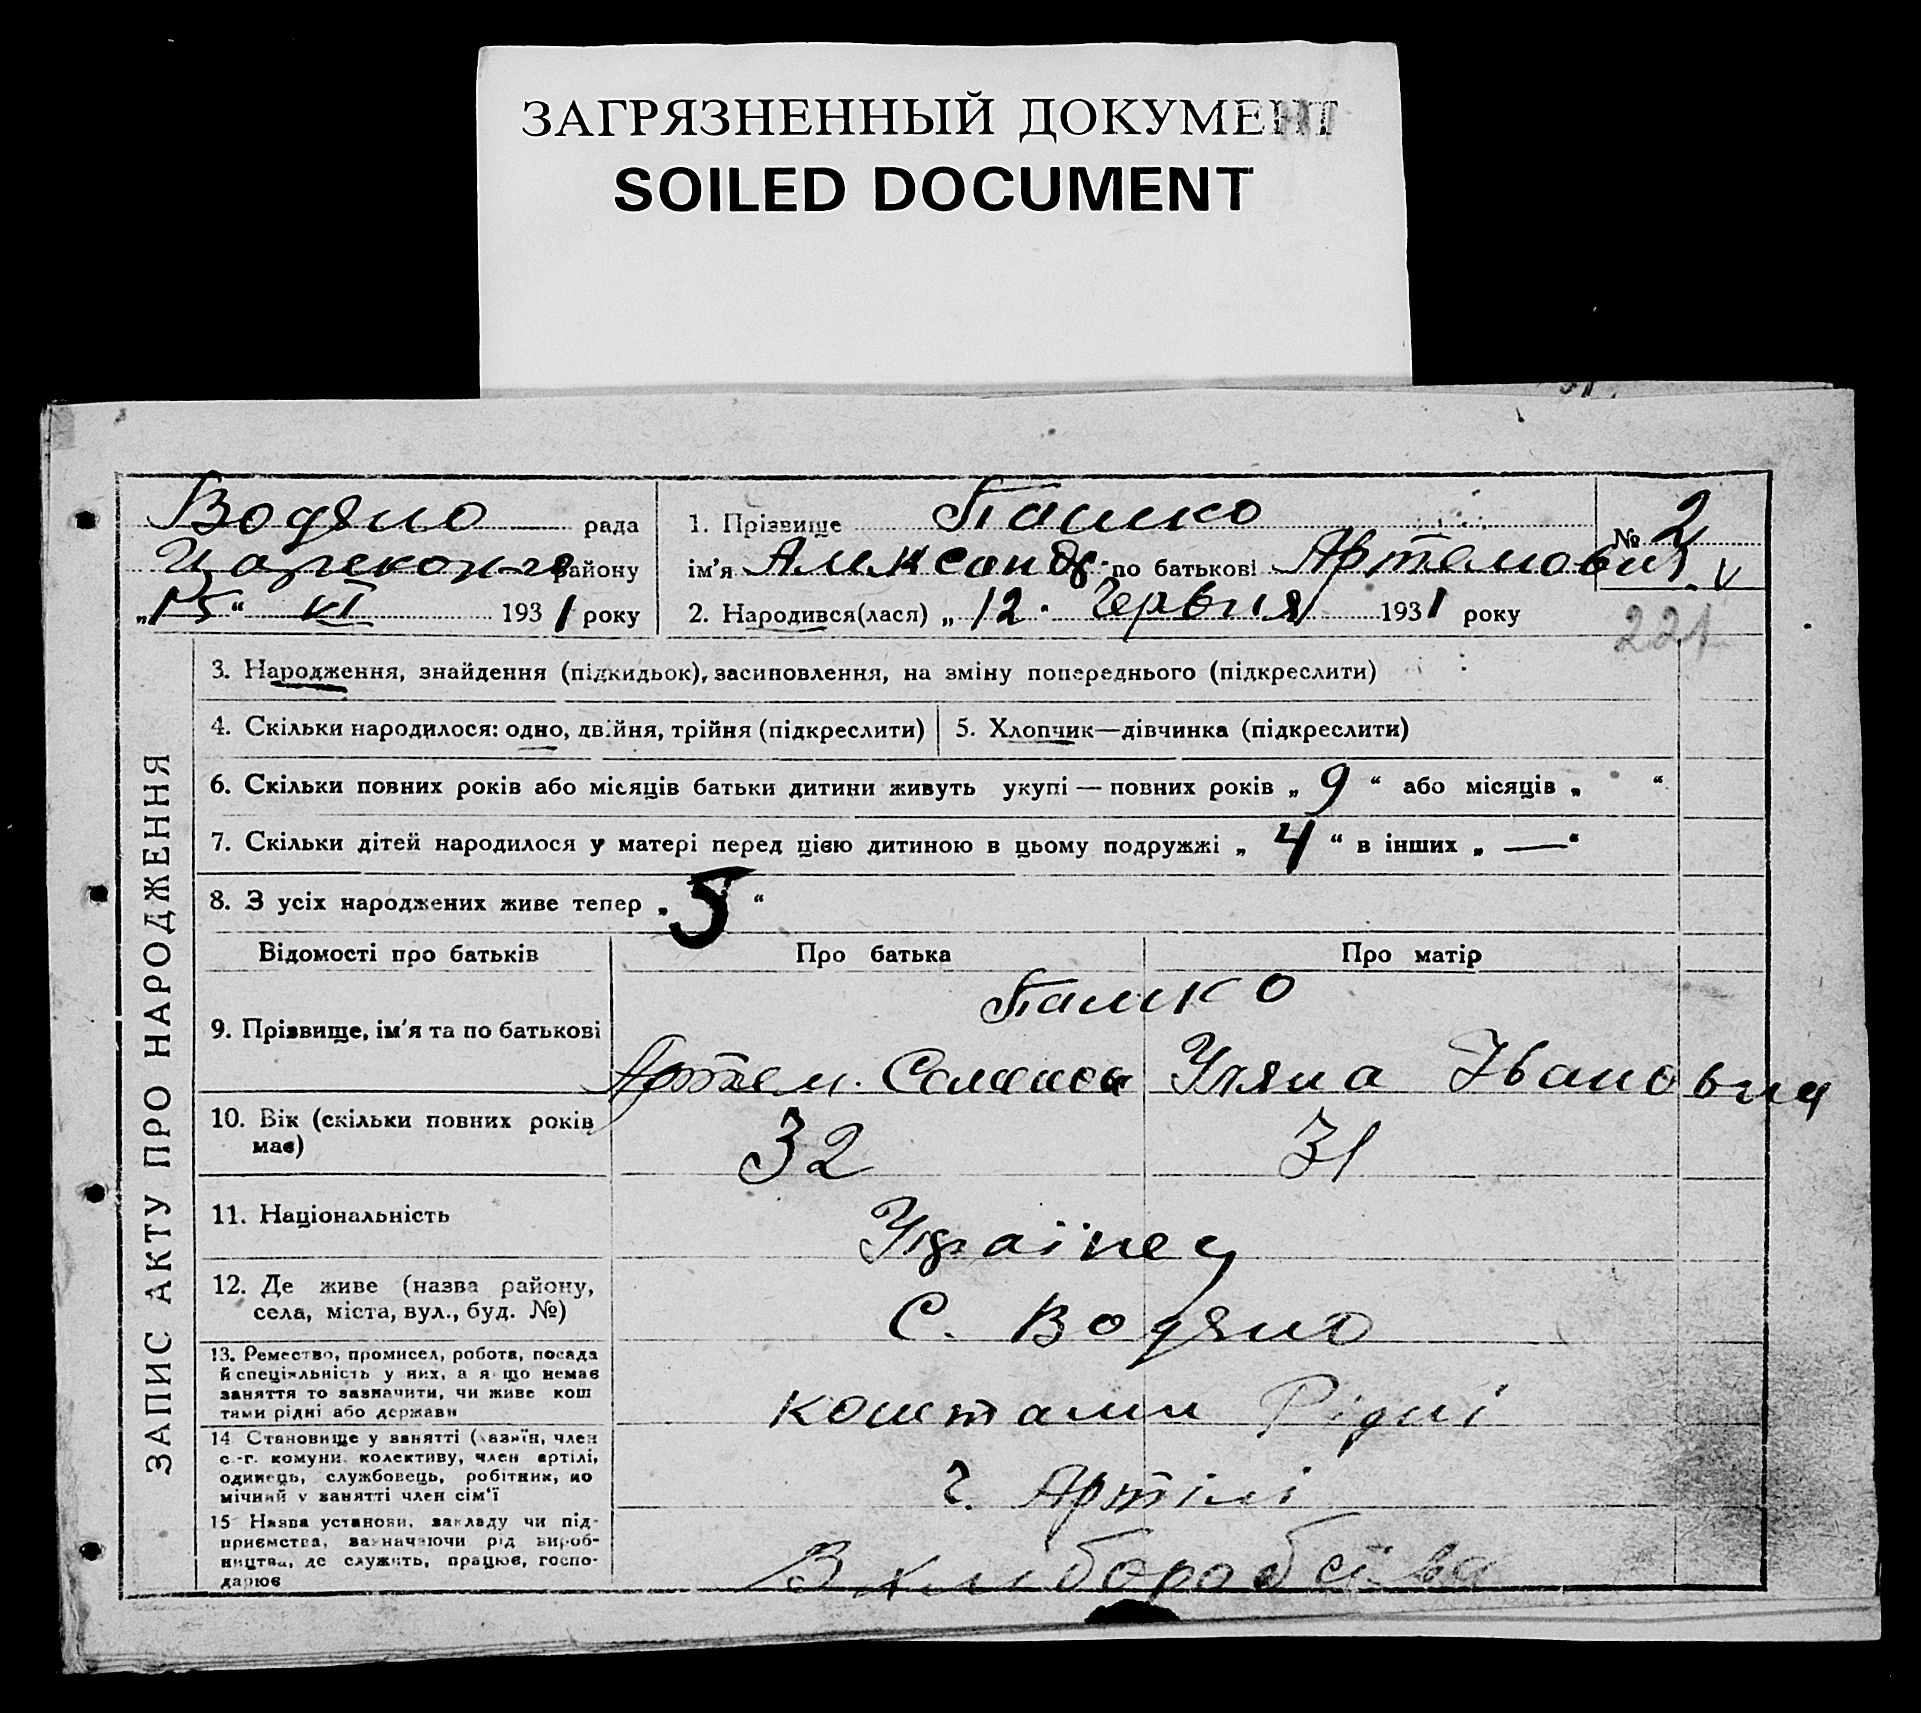 ЗАГРЯЗНЕННЫЙ ДОКУМЕНТ
SOILED DOCUMENT
Водяно рада
району
„15“ VI 1931 року
1. Прізвище Пашко
ім'я Александр по батькові Артемович
№ 2
V
2. Народився(лася) „12. Червня 1931 року
221
ЗАПИС АКТУ ПРО НАРОДЖЕННЯ
3. Народження, знайдення (підкидьок), засиновлення, на зміну попереднього (підкреслити)
4. Скільки народилося: одно, двійня, трійня (підкреслити)
5. Хлопчик—дівчинка (підкреслити)
6. Скільки повних років або місяців батьки дитини живуть укупі — повних років „ 9 “ або місяців „ “
7. Скільки дітей народилося у матері перед цією дитиною в цьому подружжі „ 4 “ в інших „ — “
8. З усіх народжених живе тепер „ 5 “
Відомості про батьків
Про батька
Про матір
9. Прізвище, ім'я та по батькові
Пашко
Артем.
Уляна Івановна
10. Вік (скільки повних років
має)
32
31
11. Національність
Українец
12. Де живе (назва району,
села, міста, вул., буд. №)
С. Водяно
13. Ремество, промисел, робота, посада
й спеціяльність у них, а якщо немає
заняття то зазначити, чи живе кош
тами рідні або держави
коштами Рідні
14 Становище у занятті (хазяїн, член
с.-г. комуни, колективу, член артілі,
одинець, службовець, робітник, по
мічний у занятті член сім'ї
г. Артілі
15 Назва установи, закладу чи під-
приємства, зазначаючи рід вироб-
ництва, де служить, працює, госпо-
дарює
В хліборобства